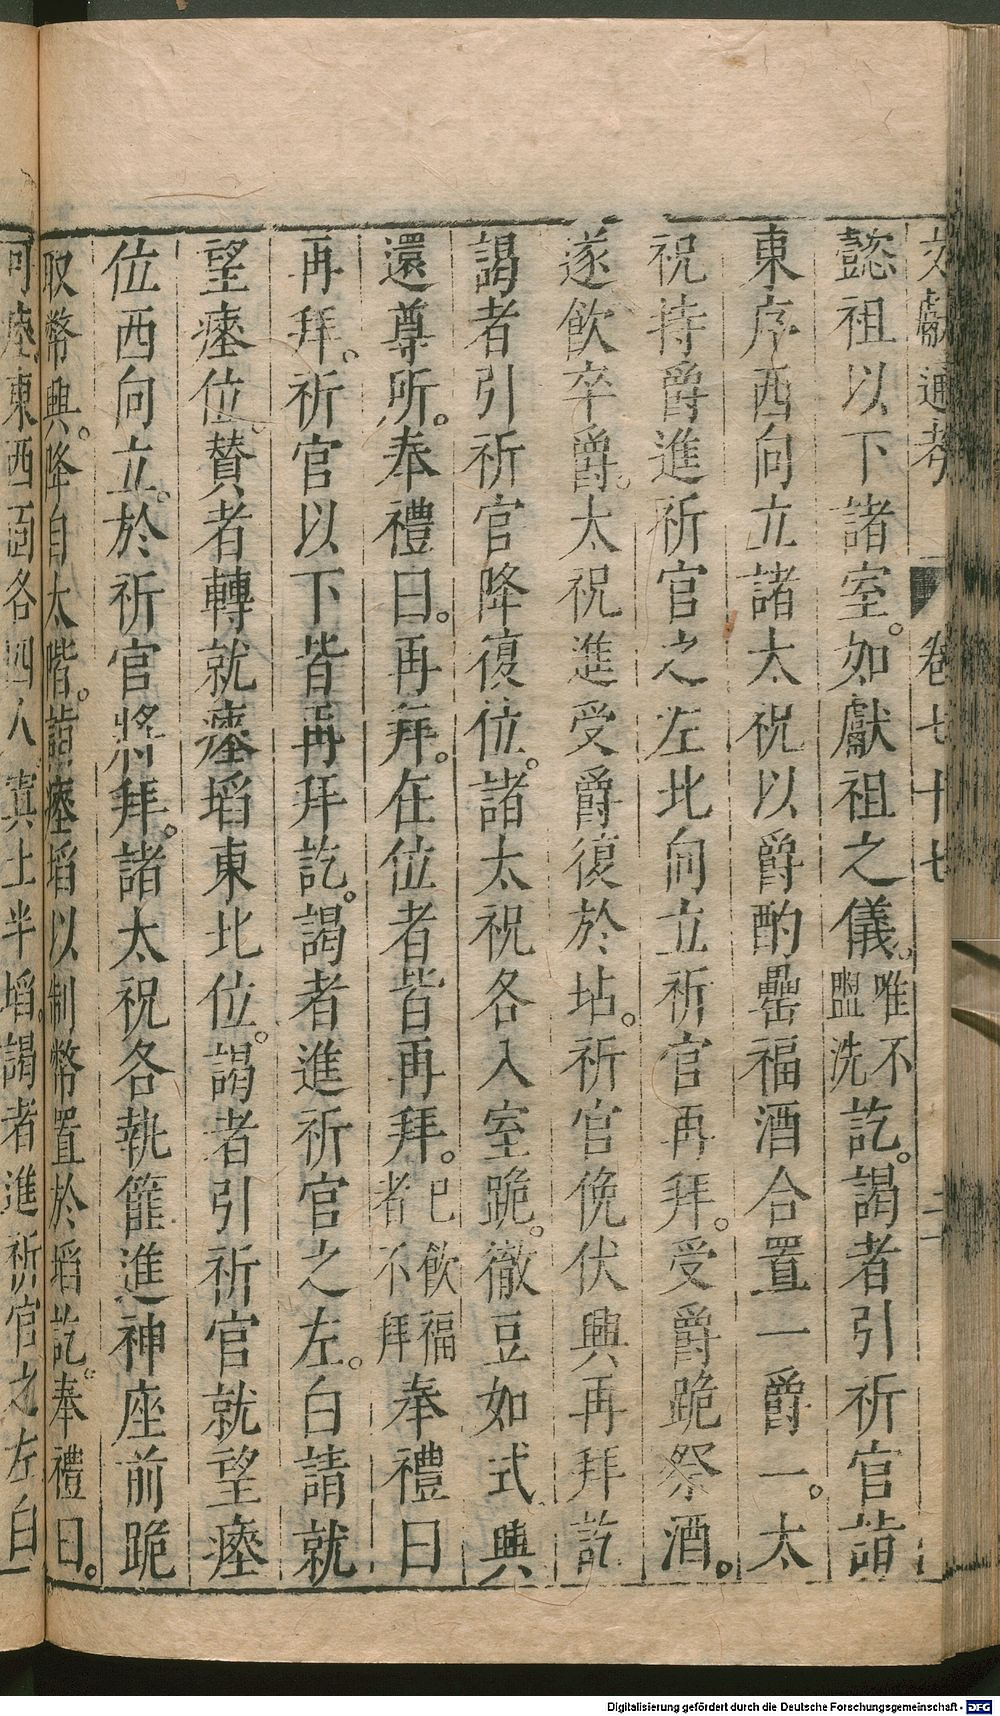 文獻通考 卷七十七 二
懿祖以下諸室。如獻祖之儀。唯不盥洗訖。謁者引祈官詣
東序西向立諸太祝以爵酌罍福酒合置一爵一。太
祝持爵進祈官之左北向立祈官再拜。受爵跪祭酒。
遂飲卒爵。太祝進受爵復於坫。祈官俛伏興再拜訖
謁者引祈官降復位。諸太祝各入室跪。徹豆如式興
還尊所。奉禮曰。再拜。在位者皆再拜。已飲福者不拜奉禮曰
再拜。祈官以下皆再拜訖。謁者進祈官之左。白請就
望瘞位。賛者轉就瘞埳東北位。謁者引祈官就望瘞
位西向立。於祈官將拜。諸太祝各執篚進神座前跪
取幣興。降自太階。詣瘞埳以制幣置於埳訖。奉禮曰。
可瘞。東西面各四人寘土半埳。謁者進祈官之左白
Digitalisierung gefördert durch die Deutsche Forschungsgemeinschaft - DFG